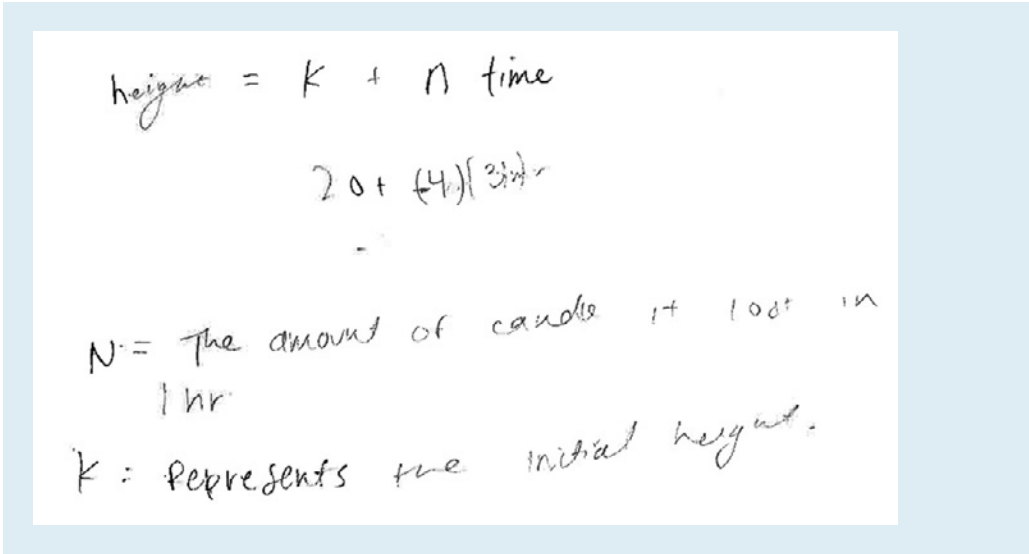 height = k + n time
20+ (-4)(3
N = The amount of candle it lost in
1 hr
k : Represents the initial height.